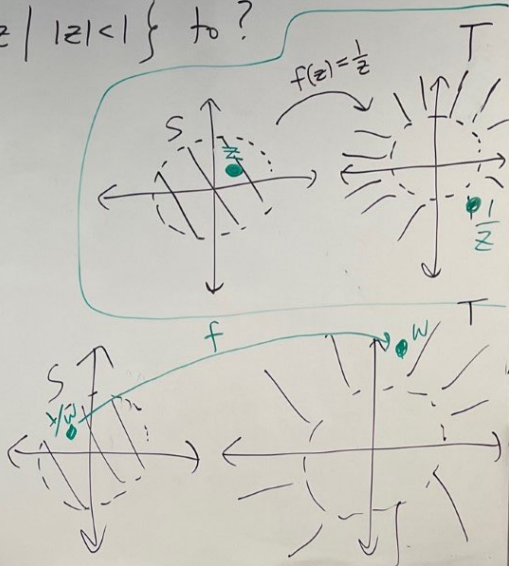 z | |z|<1} to ?
T
f(z)=1/z
S
z
1/z
T
f
w
S
1/w